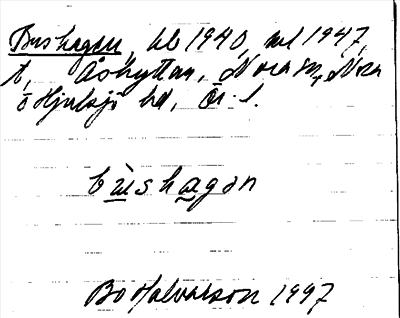 Bushagen, kb 1940, ml 1947,
t, Åshyttan, Nora sn, Nora
o Hjulsjö hd, Ör. l.
bùshagan
Bo Halvarson 1997